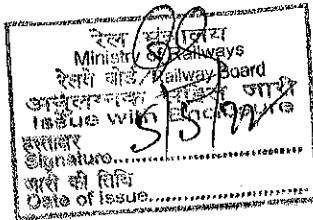 रेल मंत्रालय
Ministry of Railways
रेलवे बोर्ड/Railway Board
जारी
Issue with Enclosure
हस्ताक्षर
Signature....................
जारी की तिथि
Date of Issue....................
5/5/22